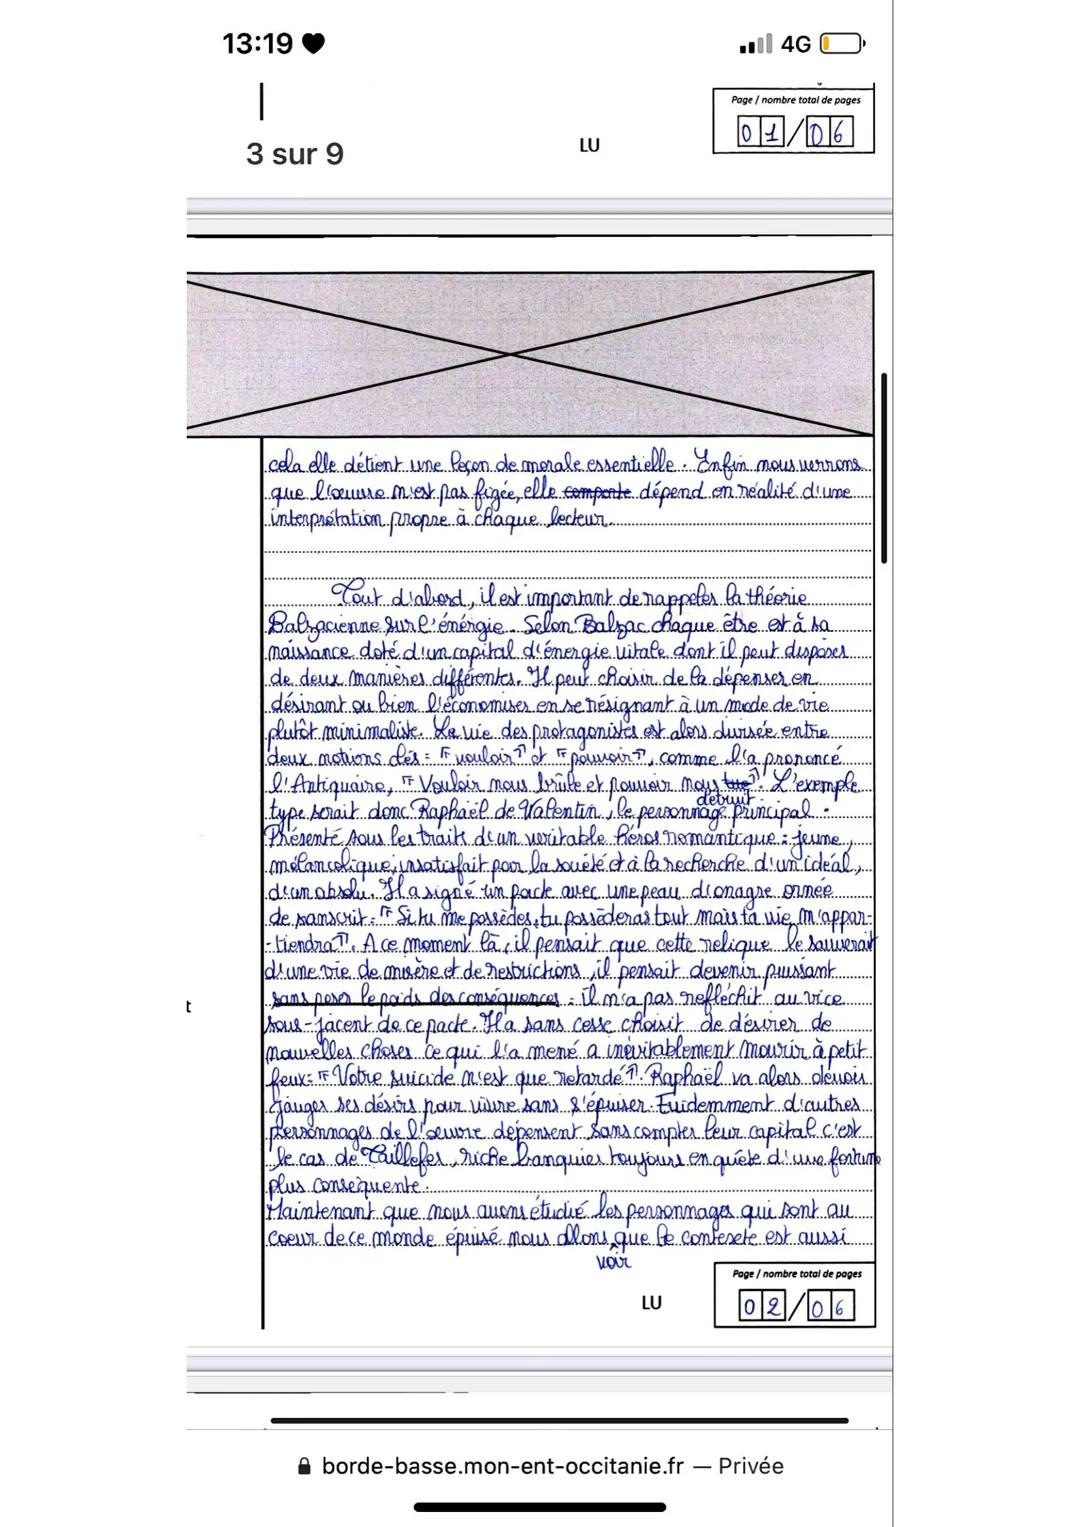 13:19
4G
Page / nombre total de pages
01/06
3 sur 9
LU
cela elle détient une leçon de morale essentielle. Enfin nous verrons
que l'oeuvre n'est pas figée, elle comporte dépend en réalité d'une
interprétation propre à chaque lecteur.
Tout d'abord, il est important de rappeler la théorie
Balzacienne sur l'énérgie. Selon Balzac chaque être est à sa
naissance doté d'un capital d'énergie vitale dont il peut disposer
de deux manières différentes. Il peut choisir de la dépenser en
désirant ou bien l'économiser en se résignant à un mode de vie
plutôt minimaliste. La vie des protagonistes est alors divisée entre
deux notions clés : "vouloir" et "pouvoir", comme l'a prononcé
l'Antiquaire, "Vouloir nous brûle et pouvoir nous tue". L'exemple
détruit
type serait donc Raphaël de Valentin, le personnage principal.
Présenté sous les traits d'un veritable héros romantique : jeune,
mélancolique, insatisfait par la société et à la recherche d'un idéal,
d'un absolu. Il a signé un pacte avec une peau d'onagre ornée
de sanscrit : "Si tu me possèdes, tu possèderas tout mais ta vie m'appar-
-tiendra". A ce moment là, il pensait que cette relique le sauverait
d'une vie de misère et de restrictions, il pensait devenir puissant
sans peser le poids des conséquences : il n'a pas réfléchit au vice
t
sous-jacent de ce pacte. Il a sans cesse choisit de désirer de
nouvelles choses ce qui l'a mené a inévitablement mourir à petit
feux : "Votre suicide n'est que retardé". Raphaël va alors devoir
jauger ses désirs pour vivre sans s'épuiser. Evidemment d'autres
personnages de l'oeuvre dépensent sans compter leur capital c'est
le cas de Taillefer, riche banquier toujours en quête d'une fortune
plus conséquente.
Maintenant que nous avons étudié les personnages qui sont au
coeur de ce monde épuisé nous allons que le contexte est aussi
voir
LU
Page / nombre total de pages
02/06
borde-basse.mon-ent-occitanie.fr — Privée